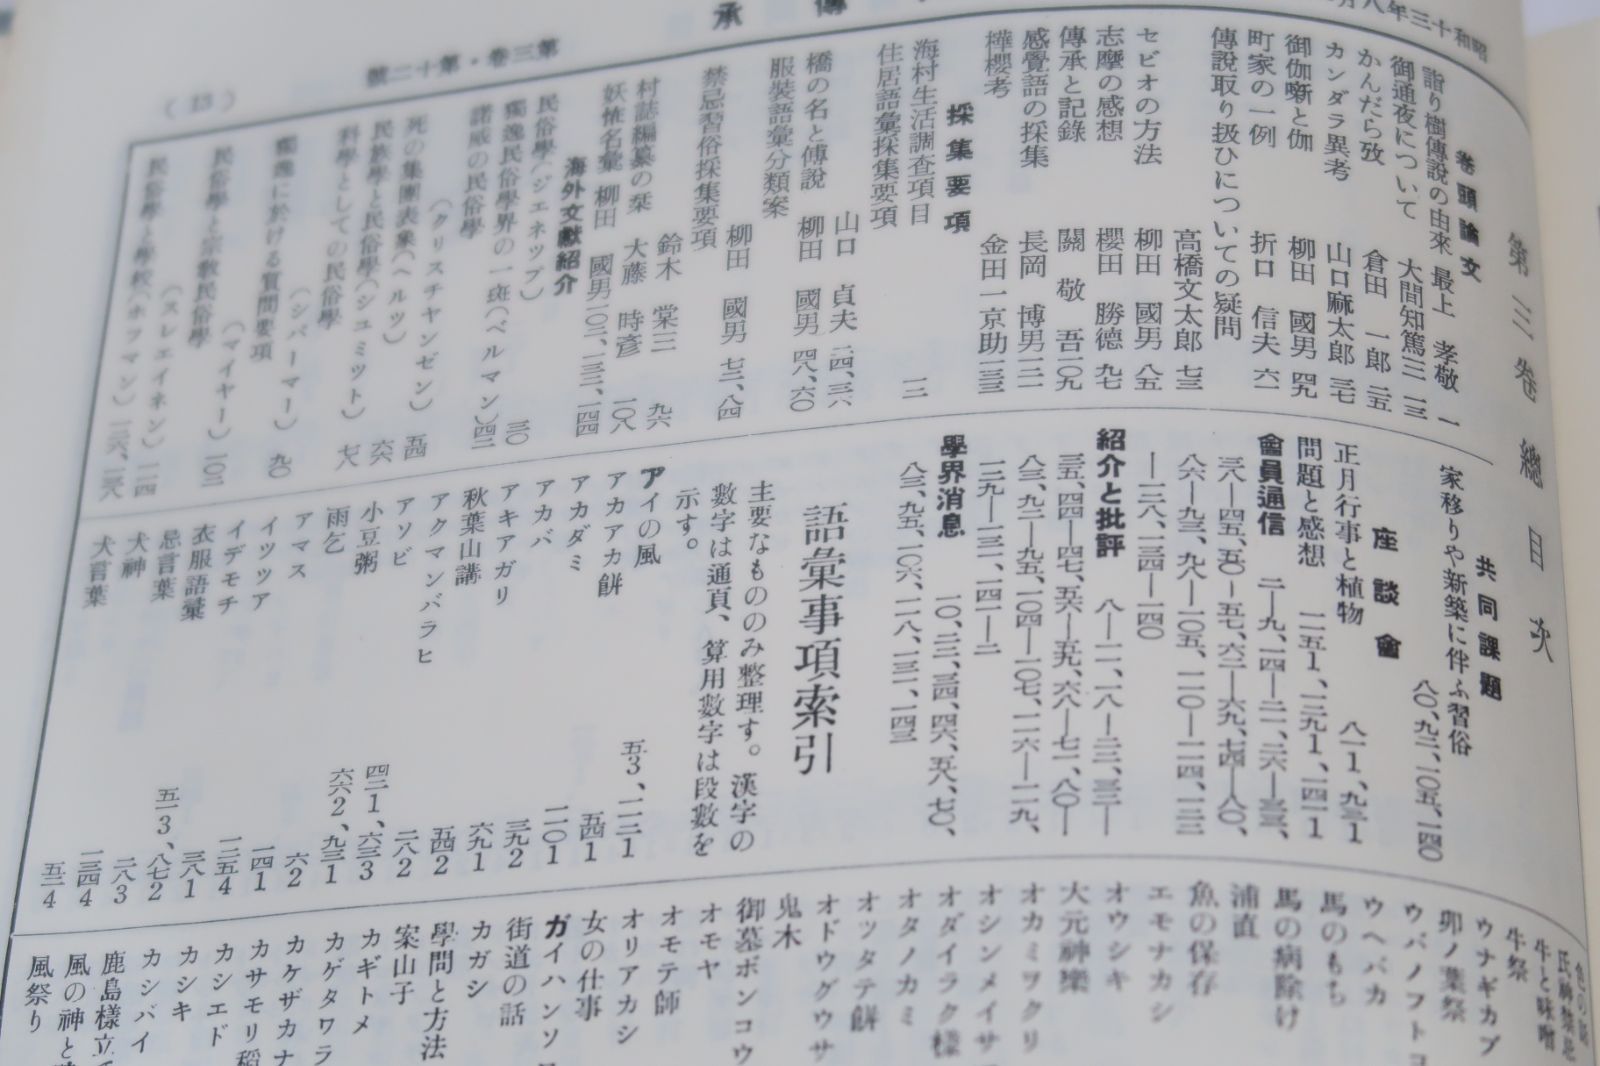 昭和十三年八月
傳承
第三卷・第十二號
(13)
第三卷總目次
卷頭論文
詣り樹傳說の由來 最上 孝敬 一
御通夜について 大間知篤三 一三
かんだら攷 倉田 一郎 二五
カンダラ異考 山口麻太郎 三七
御伽噺と伽 柳田 國男 四九
町家の一例 折口 信夫 六一
傳說取り扱ひについての疑問
高橋文太郎 七三
セビオの方法 柳田 國男 八五
志摩の感想 櫻田 勝德 九七
傳承と記錄 關 敬吾 一〇九
感覺語の採集 長岡 博男 一二一
樺櫻考 金田一京助 一三三
採集要項
海村生活調査項目 一二
住居語彙採集要項
山口 貞夫 二四、三六
橋の名と傳說 柳田 國男 四八、六〇
服裝語彙分類案
柳田 國男 七二、八四
禁忌習俗採集要項
鈴木 棠三 九六
村誌編纂の栞 大藤 時彥 一〇八
妖怪名彙 柳田 國男 一〇三、一三二、一四四
海外文獻紹介
民俗學(ジエネツプ)
獨逸民俗學界の一斑(ベルマン) 四二
諾威の民俗學
(クリスチヤンゼン) 三〇
死の集團表象(ヘルツ) 五四
民族學と民俗學(シユミット) 六六
科學としての民俗學 七八
獨逸に於ける質問要項
(シバーマー) 九〇
民俗學と宗敎民俗學
(マイヤー) 一〇三
民俗學と學校(ホフマン)
(スレエイネン) 一一四
共同課題
家移りや新築に伴ふ習俗
八〇、九二、一〇五、一四〇
座談會
正月行事と植物 八一1、九三1
問題と感想 一二五1、一三九1、一四一1
會員通信 二—九、一四—二一、二六—三三、
三八—四五、五〇—五七、六二—六九、七四—八〇、
八六—九三、九八—一〇五、一一〇—一一四、一二二
—一二八、一三四—一四〇
紹介と批評 八—一一、一八—二三、三二—
三五、四四—四七、五六—五九、六八—七一、八〇—
八三、九二—九五、一〇四—一〇七、一一六—一一九、
一二九—一三一、一四一—二
學界消息 一〇、二二、三四、四六、五八、七〇、
八三、九五、一〇六、一一八、一三一、一四三
語彙事項索引
主要なもののみ整理す。漢字の
數字は通頁、算用數字は段數を
示す。
アイの風 五3、一二二1
アカアカ餅 五四1
アカダミ 一一〇1
アカバ 三九2
アキアガリ 六九1
秋葉山講 五四2
アクマンバラヒ 二八2
アソビ 四二1、六三3
小豆粥 六六2、九三1
雨乞 六2
アマス 一四1
イツツア 一二五4
イデモチ 三八1
衣服語彙 五一3、八七2
忌言葉 二八3
犬神 一三四4
犬言葉 五二4
牛と味噌
牛祭
ウナギカブ
卯ノ葉祭
ウバノフトコ
ウヘバカ
馬のもち
馬の病除け
浦直
魚の保存
エモナカシ
オウシキ
大元神樂
オカミヲクリ
オシンメイサ
オダイラク樣
オタノカミ
オツタテ餅
オドウグウサ
鬼木
御墓ボンコウ
オモヤ
オモテ師
オリアカシ
女の仕事
ガイハンソ
街道の話
カガシ
學問と方法
案山子
カギトメ
カゲタワラ
カケザカナ
カサモリ稻
カシエド
カシキ
カシバイ
鹿島樣立
風の神と
風祭り